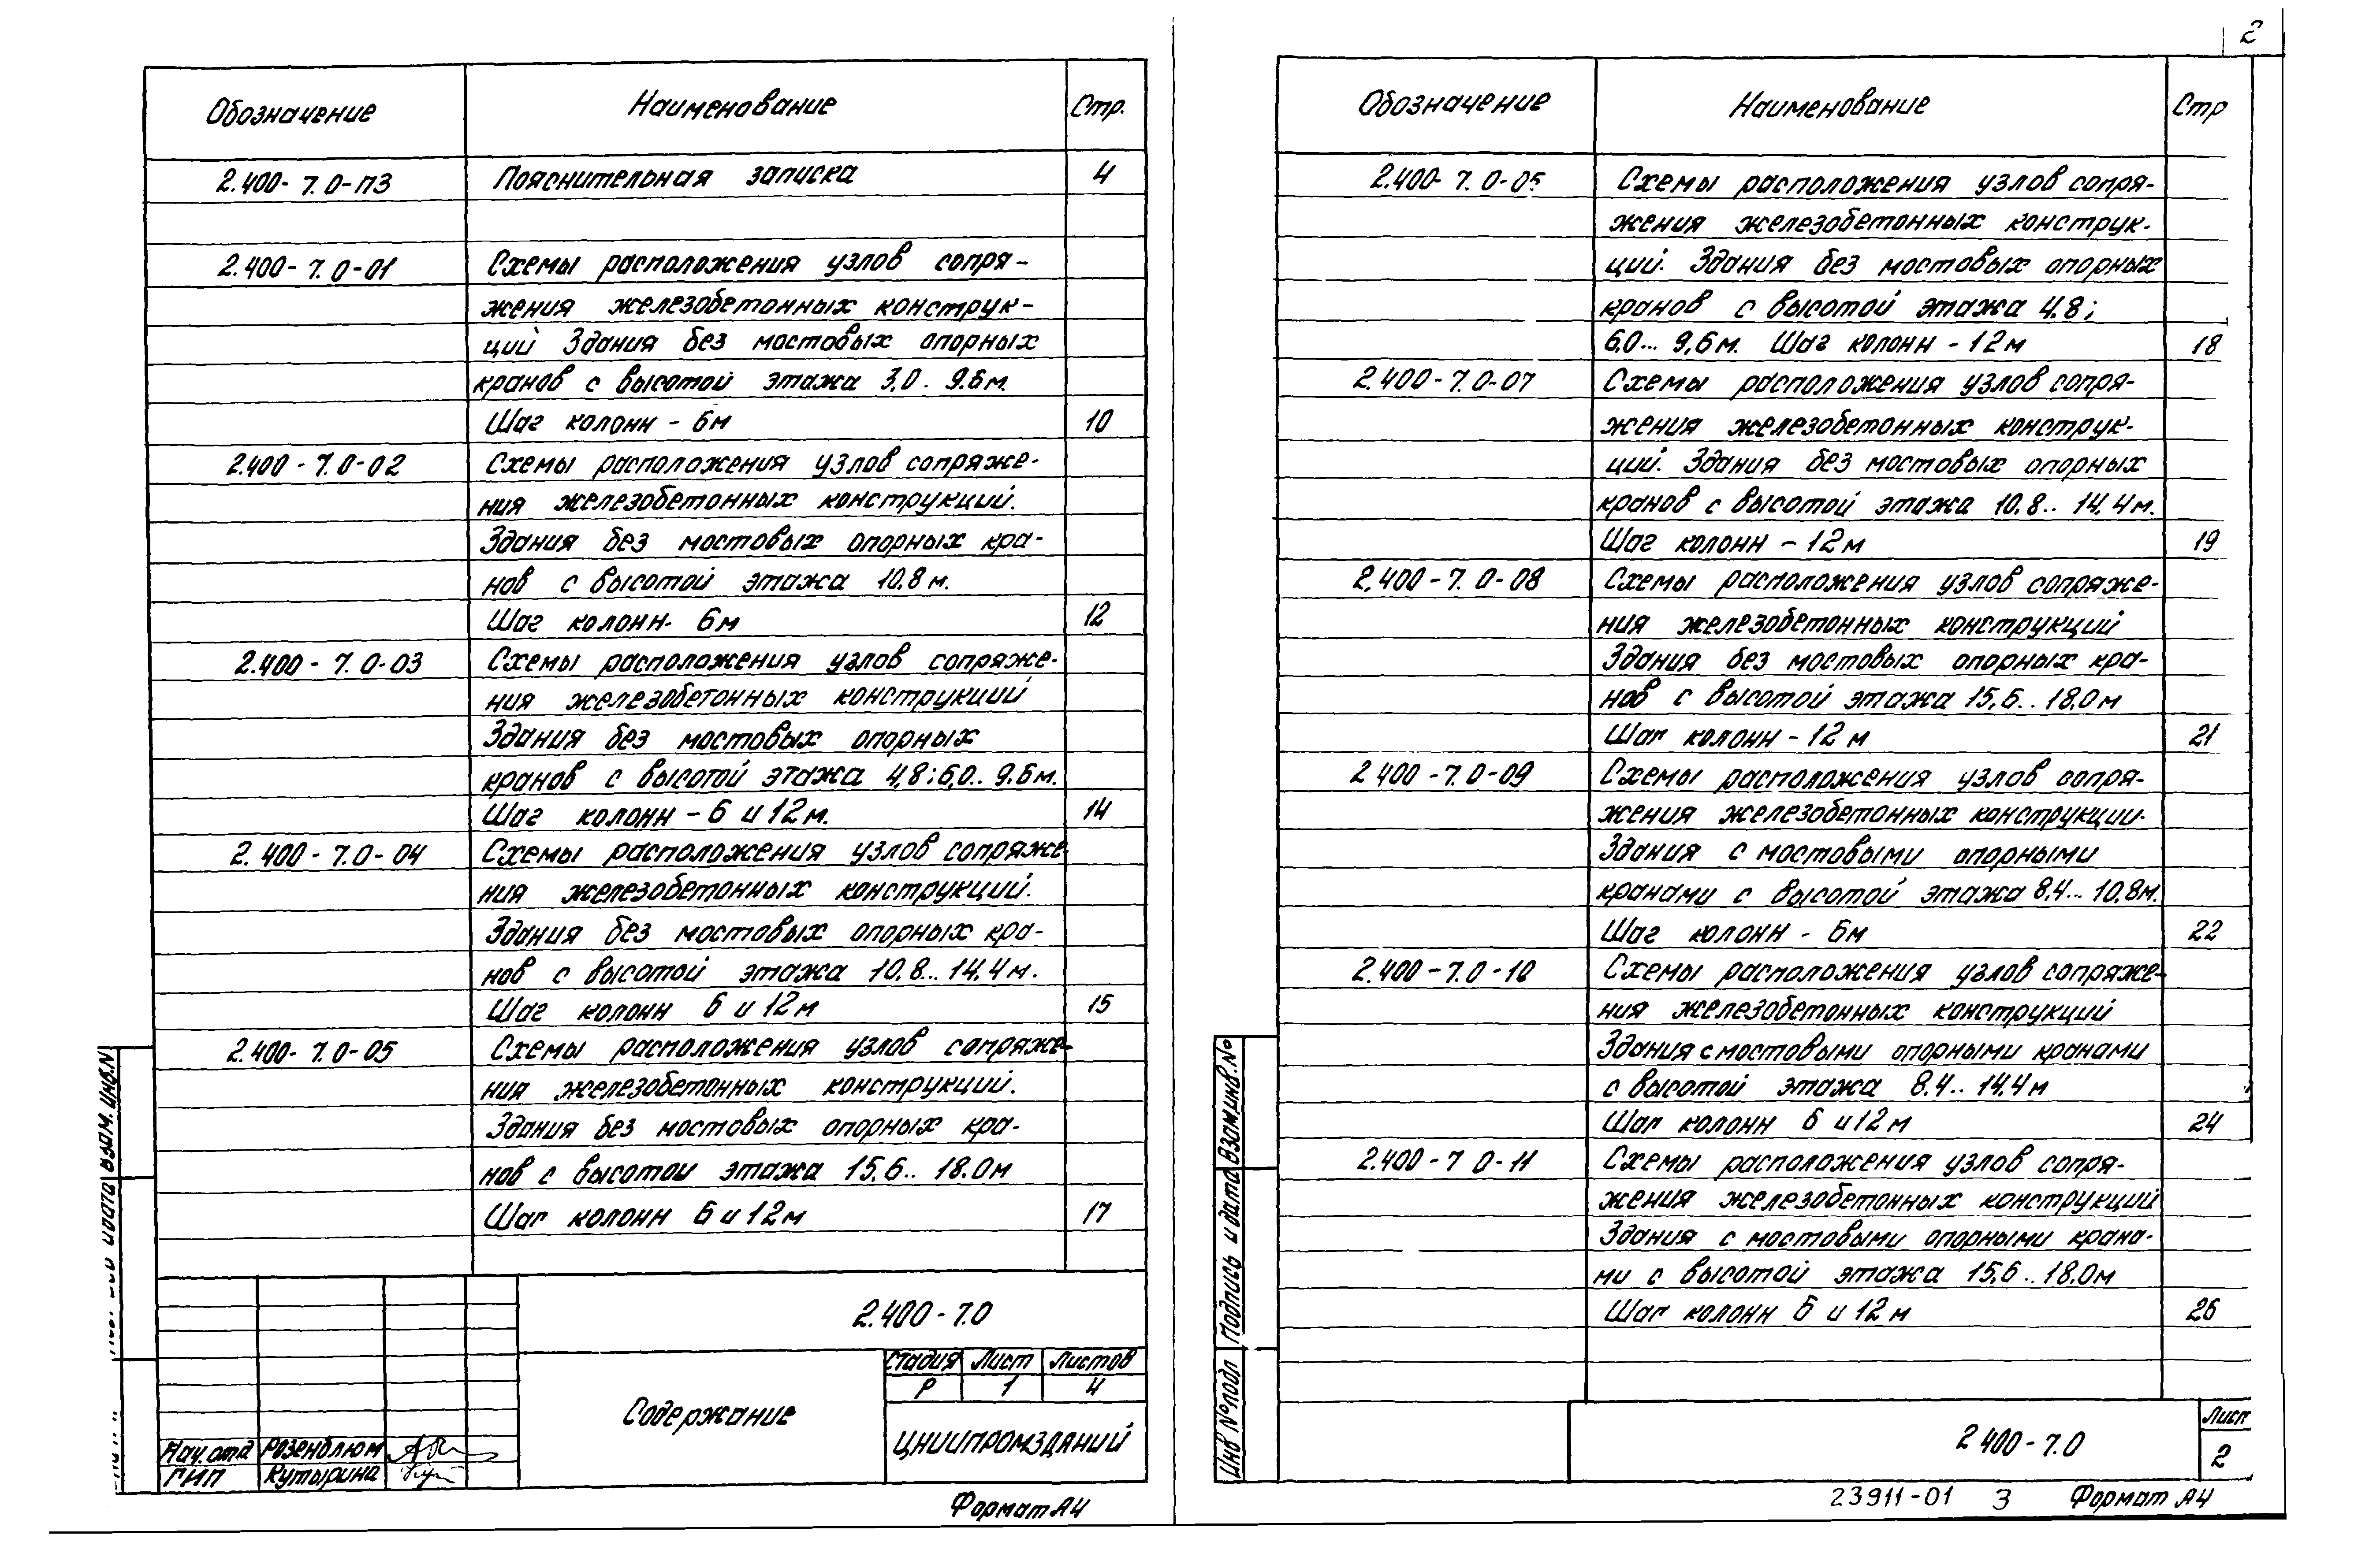 2
Обозначение Наименование Стр.
2.400-7.0-ПЗ Пояснительная записка 4
2.400-7.0-01 Схемы расположения узлов сопря-
жения железобетонных конструк-
ций Здания без мостовых опорных
кранов с высотой этажа 3,0.. 9.6м.
Шаг колонн - 6м 10
2.400-7.0-02 Схемы расположения узлов сопряже-
ния железобетонных конструкций.
Здания без мостовых опорных кра-
нов с высотой этажа 10,8м.
Шаг колонн- 6м 12
2.400-7.0-03 Схемы расположения узлов сопряже-
ния железобетонных конструкций
Здания без мостовых опорных
кранов с высотой этажа 4,8; 6,0.. 9.6м.
Шаг колонн - 6 и 12м. 14
2.400-7.0-04 Схемы расположения узлов сопряже
ния железобетонных конструкций.
Здания без мостовых опорных кра-
нов с высотой этажа 10,8... 14,4м.
Шаг колонн 6 и 12м 15
2.400-7.0-05 Схемы расположения узлов сопряже-
ния железобетонных конструкций.
Здания без мостовых опорных кра-
нов с высотой этажа 15,6.. 18.0м
Шаг колонн 6 и 12м 17
2.400-7.0
Содержание
Стадия Лист Листов
Р 1 4
ЦНИИПРОМЗДАНИЙ
Нач. отд Розенблюм
ГИП Кутырина
Взам. инв.N
Формат А4
Обозначение Наименование Стр
2.400-7.0-05 Схемы расположения узлов сопря-
жения железобетонных конструк-
ций. Здания без мостовых опорных
кранов с высотой этажа 4,8;
6,0... 9,6м. Шаг колонн - 12м 18
2.400-7.0-07 Схемы расположения узлов сопря-
жения железобетонных конструк-
ций. Здания без мостовых опорных
кранов с высотой этажа 10,8.. 14,4м.
Шаг колонн - 12м 19
2.400-7.0-08 Схемы расположения узлов сопряже-
ния железобетонных конструкций
Здания без мостовых опорных кра-
нов с высотой этажа 15,6.. 18,0м
Шаг колонн - 12м 21
2 400-7.0-09 Схемы расположения узлов сопря-
жения железобетонных конструкции.
Здания с мостовыми опорными
кранами с высотой этажа 8,4... 10,8м.
Шаг колонн - 6м 22
2.400-7.0-10 Схемы расположения узлов сопряже-
ния железобетонных конструкций
Здания с мостовыми опорными кранами
с высотой этажа 8.4.. 14,4м
Шаг колонн 6 и 12м 24
2.400-7 0-11 Схемы расположения узлов сопря-
жения железобетонных конструкций
Здания с мостовыми опорными крана-
ми с высотой этажа 15,6.. 18,0м
Шаг колонн 6 и 12м 26
Взам.инв.№
Подпись и дата
Инв №подл
2 400-7.0
Лист
2
23911-01 3 Формат А4